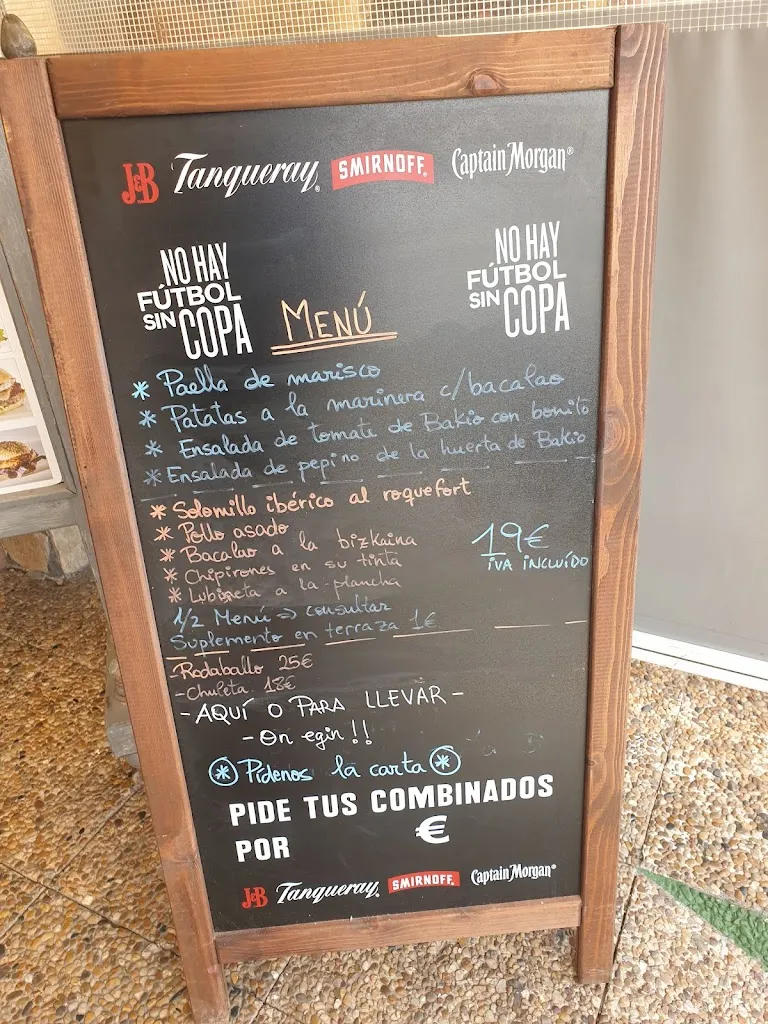 J&B Tanqueray SMIRNOFF. Captain Morgan®
NO HAY
FÚTBOL
SIN COPA
NO HAY
FÚTBOL
SIN COPA
MENÚ
* Paella de marisco
* Patatas a la marinera c/bacalao
* Ensalada de tomate de Bakio con bonito
* Ensalada de pepino de la huerta de Bakio
* Solomillo ibérico al roquefort
* Pollo asado
* Bacalao a la bizkaina
* Chipirones en su tinta
* Lubineta a la plancha
19€
IVA INCLUÍDO
1/2 Menú => consultar
Suplemento en terraza 1€
- Rodaballo 25€
- Chuleta 18€
- AQUÍ O PARA LLEVAR -
- On egin!!
* Pídenos la carta *
PIDE TUS COMBINADOS
POR €
J&B Tanqueray. SMIRNOFF. Captain Morgan®